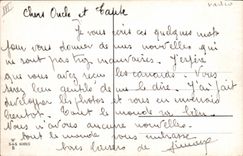 Chers Oncle et Tante
Je vous écris ces quelques mots
pour vous donner de mes nouvelles qui
ne sont pas trop mauvaises. J'espère
que vous avez reçu les canards. Vous
bien gentils de me le dire. J'ai fait
développer les photos et vous en enverrai
bientôt. Tout le monde va bien.
Nous n'avons aucune nouvelle.
tout le monde vous embrasse
Bons baisers de